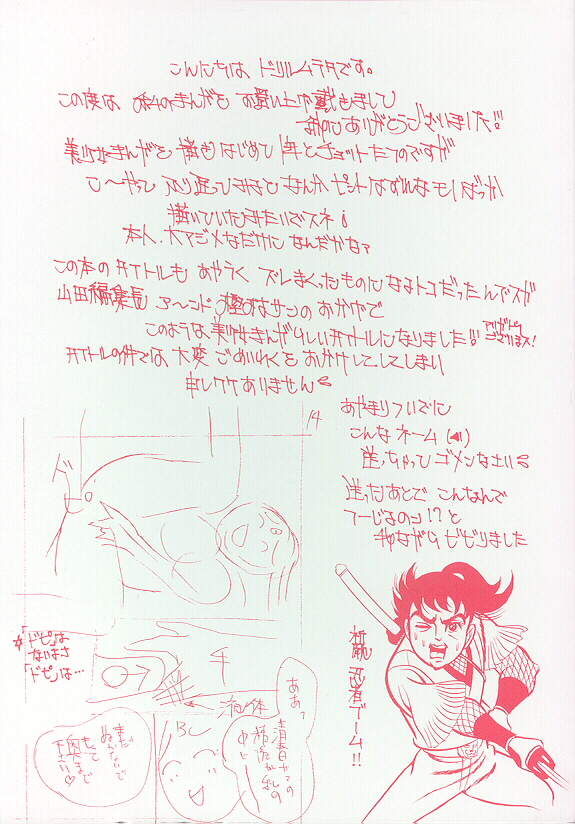 こんにちは ドリルムラタです。
この度は 私のまんがを お買い上げ戴きまして
まことにありがとうございました!!
美少女まんがを 描きはじめて 1年とチョットたつのですが
こ〜やって ふり返ってみると なんか ピントはずれなモノばっか
描いていたみたいでスネ
本人、大マジメなだけに なんだかな?
この本のタイトルも あやうく ズレまくったものになるトコだったんでスガ
山田編集長 ア〜ンド サンの おかげで
このような美少女まんがらしいタイトルになりました!!
アリガトウございまス!
タイトルの件では 大変 ごめいわくを おかけしてしてしまい
申しワケありません
あやまりついでに
こんな ネーム
送っちゃって ゴメンなさい
送ったあとで こんなんで
つーじるのか!? と
我ながら ビビりました
14
ド
☆「ドピ」は
ないよナ
「ドピ」は…
チ
液体
BC
ああっ
青春の
まだ
ぬかないで
もっと
奥まで
祝 忍者ブーム!!